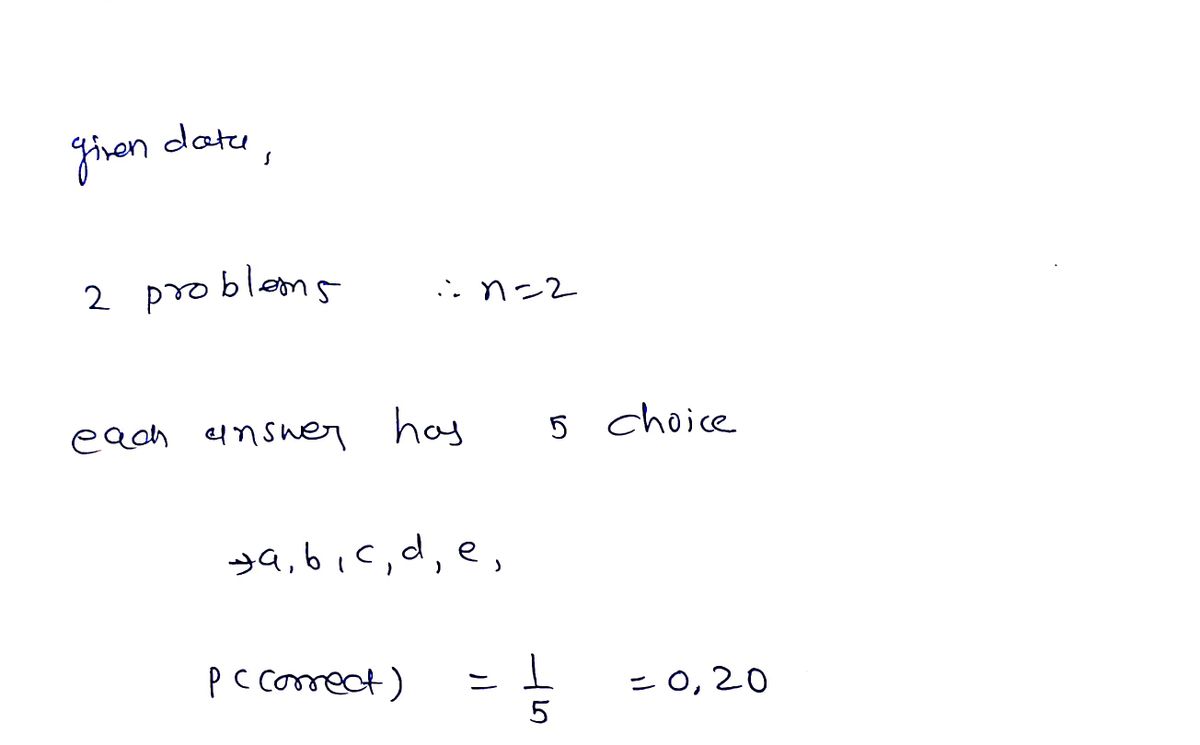 given data,
2 problems ∴ n=2
each answer has 5 choice
→a, b, c, d, e,
P(correct) = 1/5 = 0,20